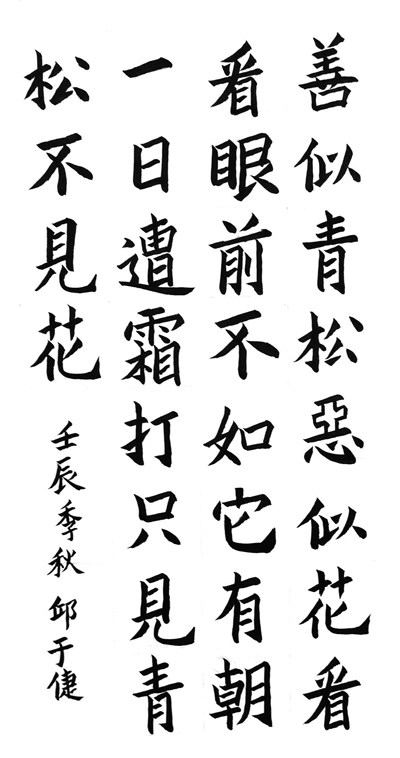 善似青松惡似花看
看眼前不如它有朝
一日遭霜打只見青
松不見花
壬辰季秋 邱于倢